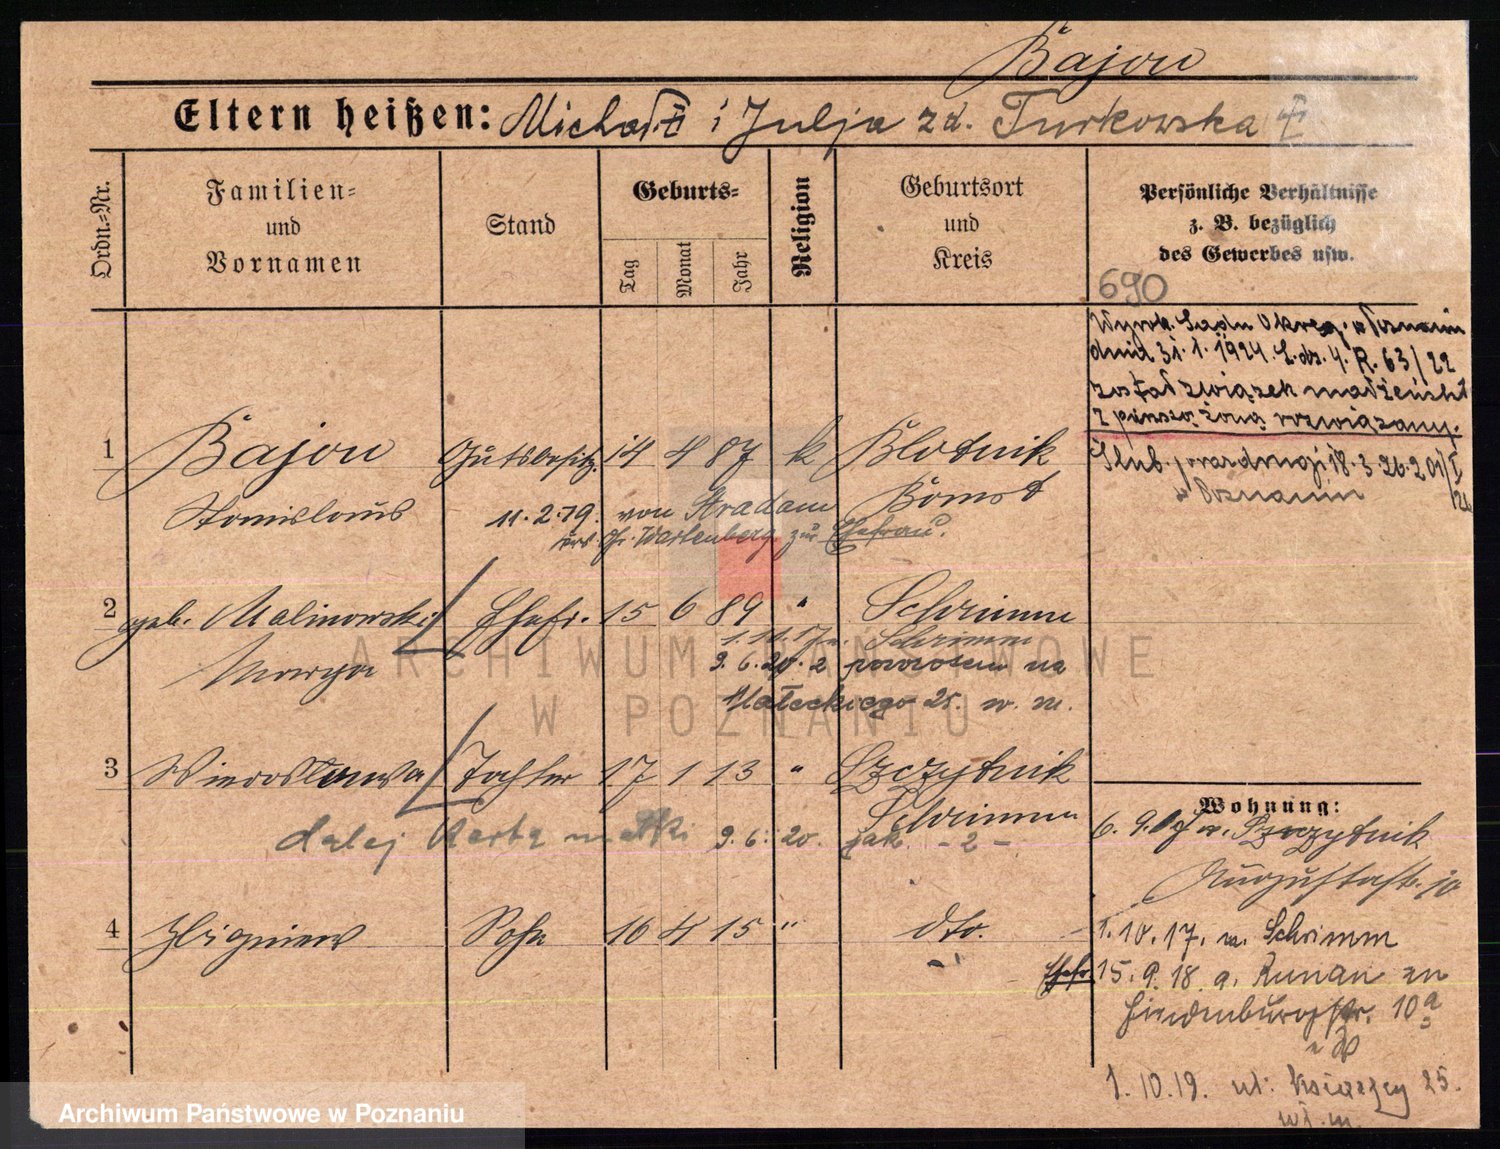 Bajon
Eltern heißen: Michał i Julja zd. Turkowska
Ordn.-Nr.
Familien-
und
Vornamen
Stand
Geburts-
Tag
Monat
Jahr
Religion
Geburtsort
und
Kreis
Persönliche Verhältnisse
z. B. bezüglich
des Gewerbes usw.
690
Wyrok. Sądu Okręg. w Poznaniu
dnia 31.1.1924 L.dz. 4. R. 63/22
został związek małżeński
z pierwszą żoną rozwiązany.
Ślub. 18.3.26. 201/I
w Poznaniu
1 Bajon Gutsbesitz. 14 4 87 k Blotnik
Stanislaus Bomst
11.2.19. von Stradam
Kr. Wartenberg zur Ehefrau.
2 geb. Malinowski Ehefr. 15 6 89 " Schrimm
Marya
1.10.17 n. Schrimm
9.6.20. z powrotem na
Małeckiego 25. w. m.
3 Wierosława Tochter 17 1 13 " Szczytnik
Schrimm
dalej karta matki 9.6.20. jak -2-
4 Zbigniew Sohn 16 4 15 " dto.
Wohnung:
6.9. Szczytnik
Augustastr. 10
1.10.17. n. Schrimm
Ehefr. 15.9.18 a. Kurnau zu
Hindenburgstr. 10a
1.10.19. ul: 25.
w. m.
ARCHIWUM PAŃSTWOWE
W POZNANIU
Archiwum Państwowe w Poznaniu